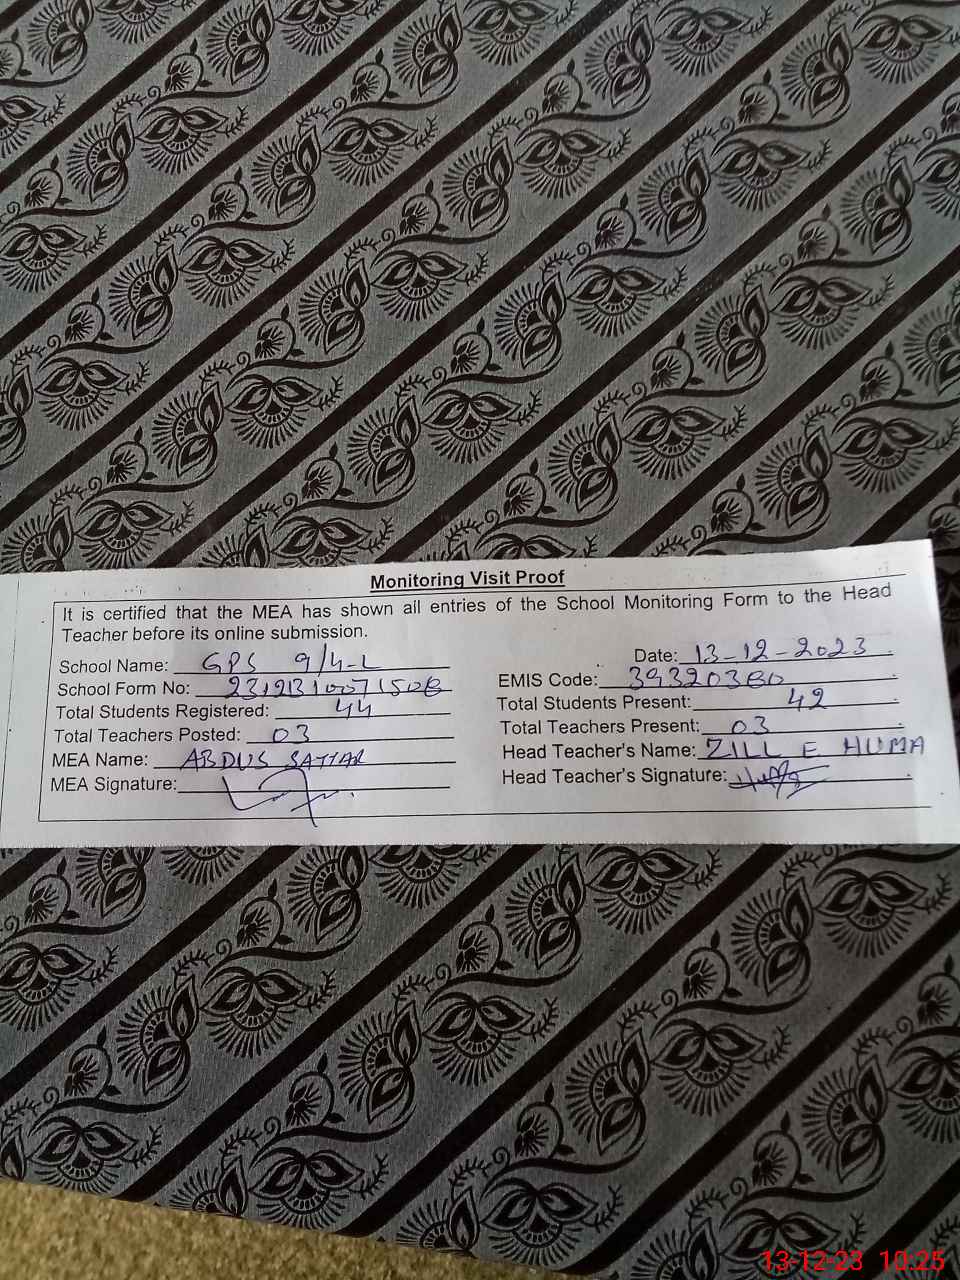 Monitoring Visit Proof
It is certified that the MEA has shown all entries of the School Monitoring Form to the Head
Teacher before its online submission.
School Name: GPS 9/4-L
Date: 13-12-2023
School Form No:
EMIS Code: 39320380
Total Students Registered: 44
Total Students Present: 42
Total Teachers Posted: 03
Total Teachers Present: 03
MEA Name: ABDUS SATTAR
Head Teacher's Name: ZILL E HUMA
MEA Signature:
Head Teacher's Signature:
13-12-23 10:25